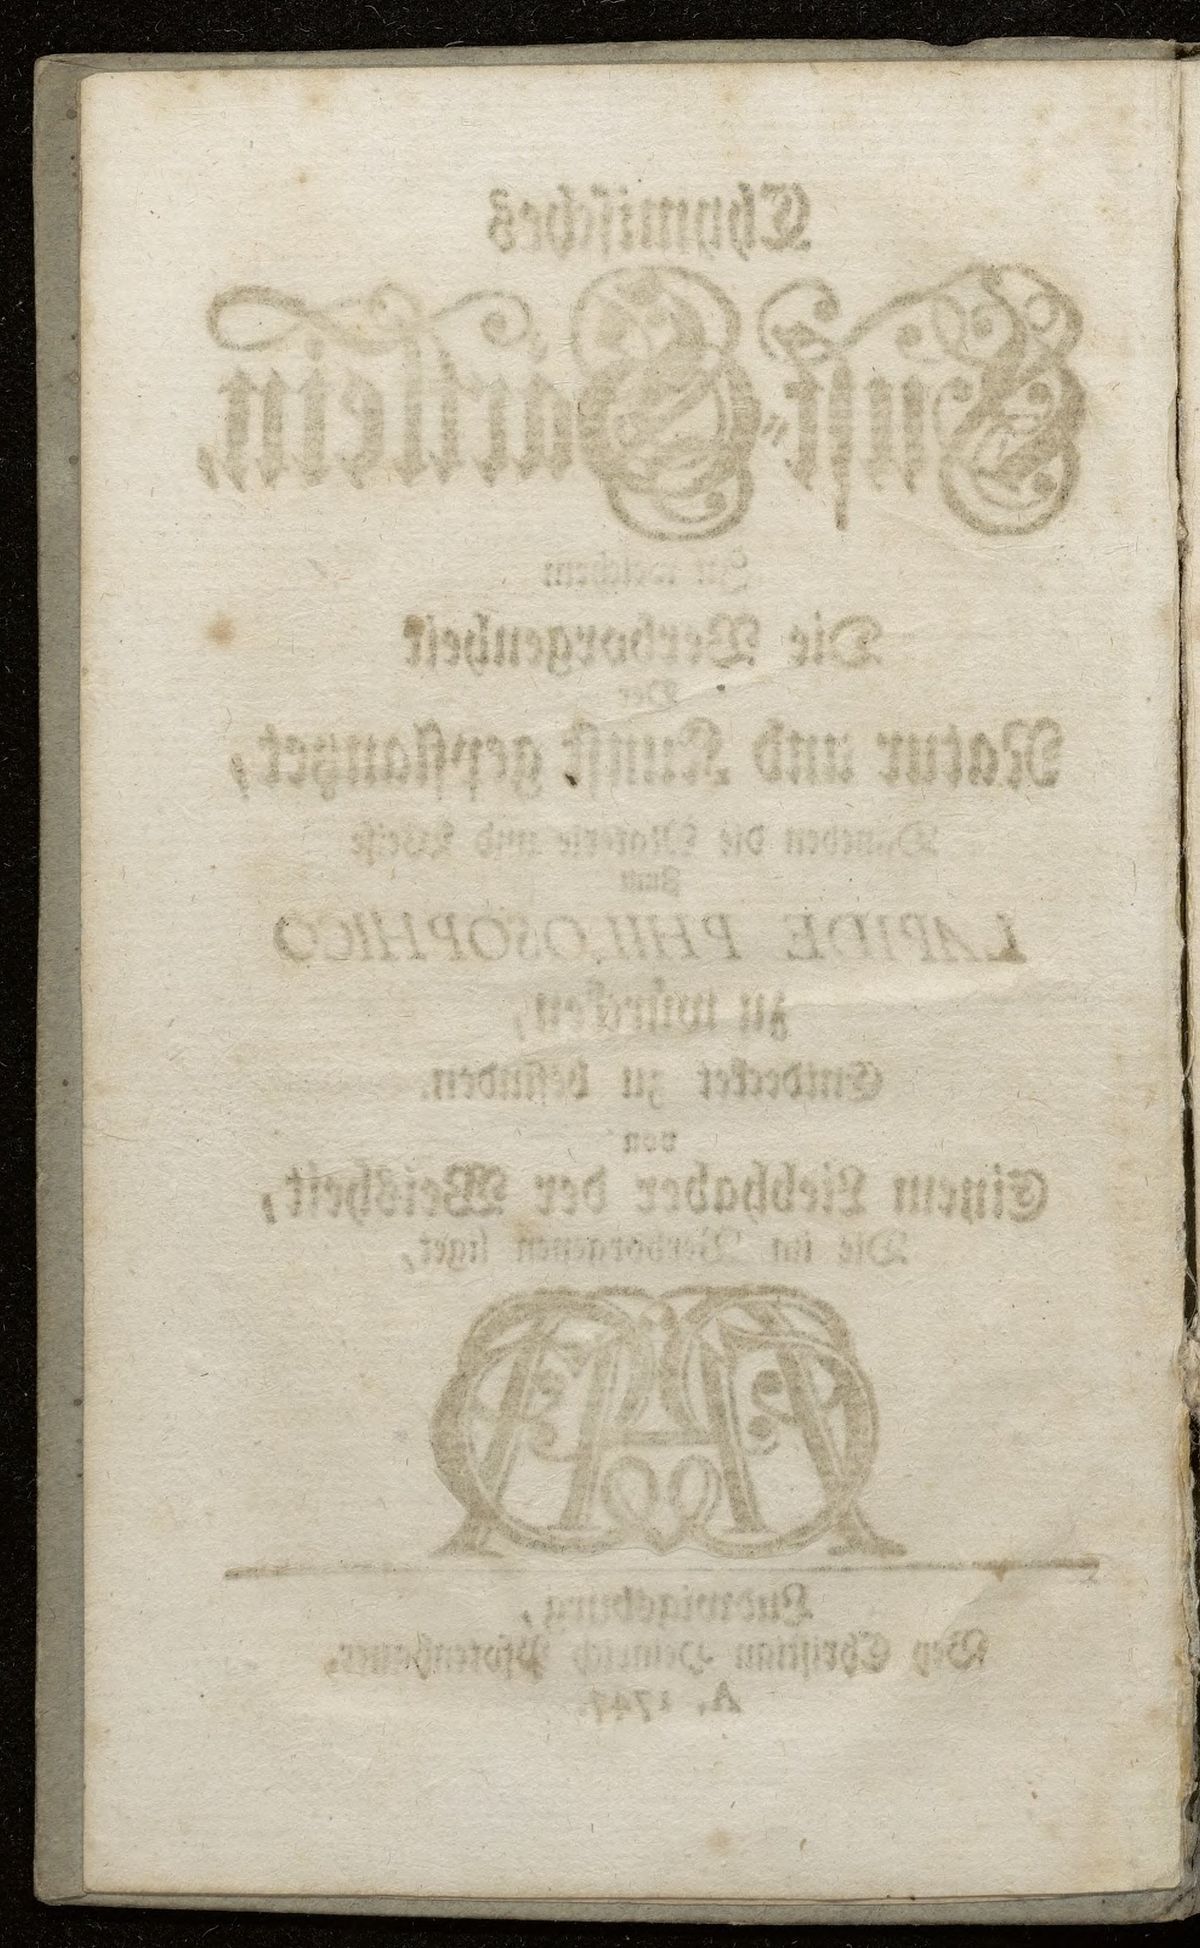 Chymisches
Lust-Gärtlein,
In welchem
Die Verborgenheit
Der
Natur und Kunst gepflanzet,
Daneben die Materie und Weise
Zum
LAPIDE PHILOSOPHICO
zu würcken,
Entdecket zu befinden.
von
Einem Liebhaber der Weisheit,
Die im Verborgenen liget,
Ludwigsburg,
Bey Christian Heinrich Pfotenhauer,
A. 1747.